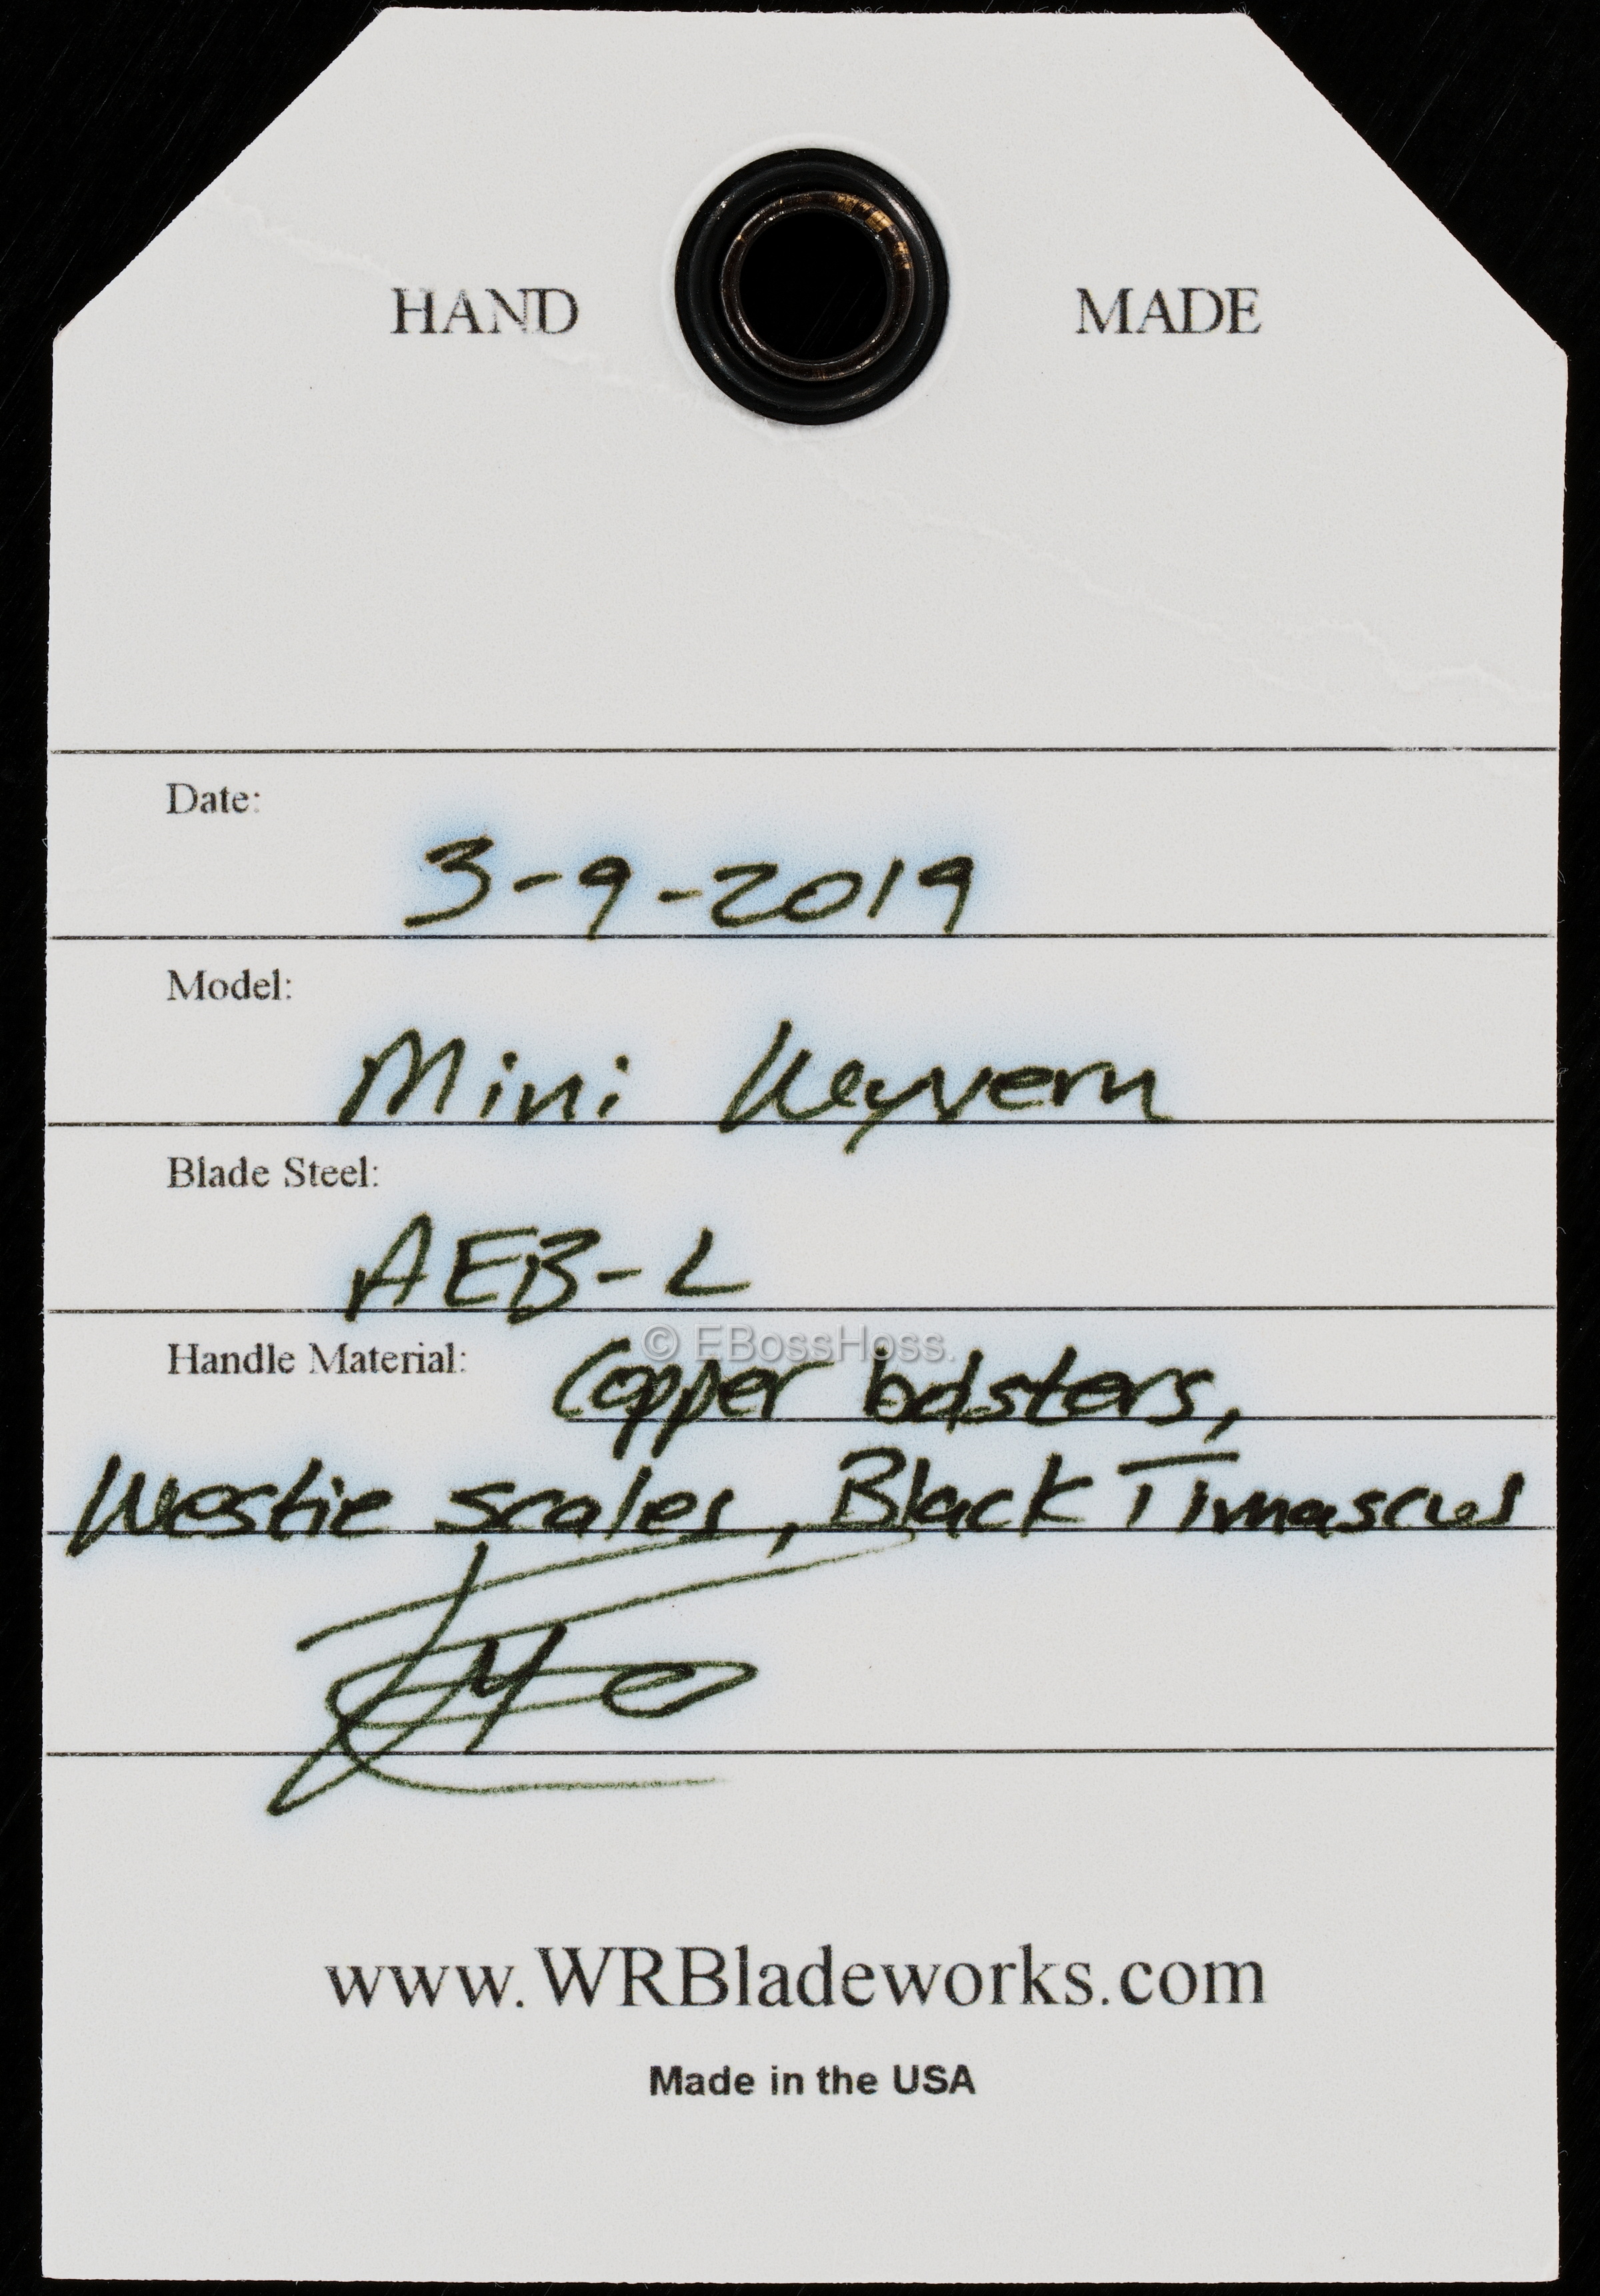 HAND MADE
Date:
3-9-2019
Model:
Mini Weyvern
Blade Steel:
AEB-L
© EBossHoss.
Handle Material: Copper bolsters,
Westie scales, Black Timascus
www.WRBladeworks.com
Made in the USA